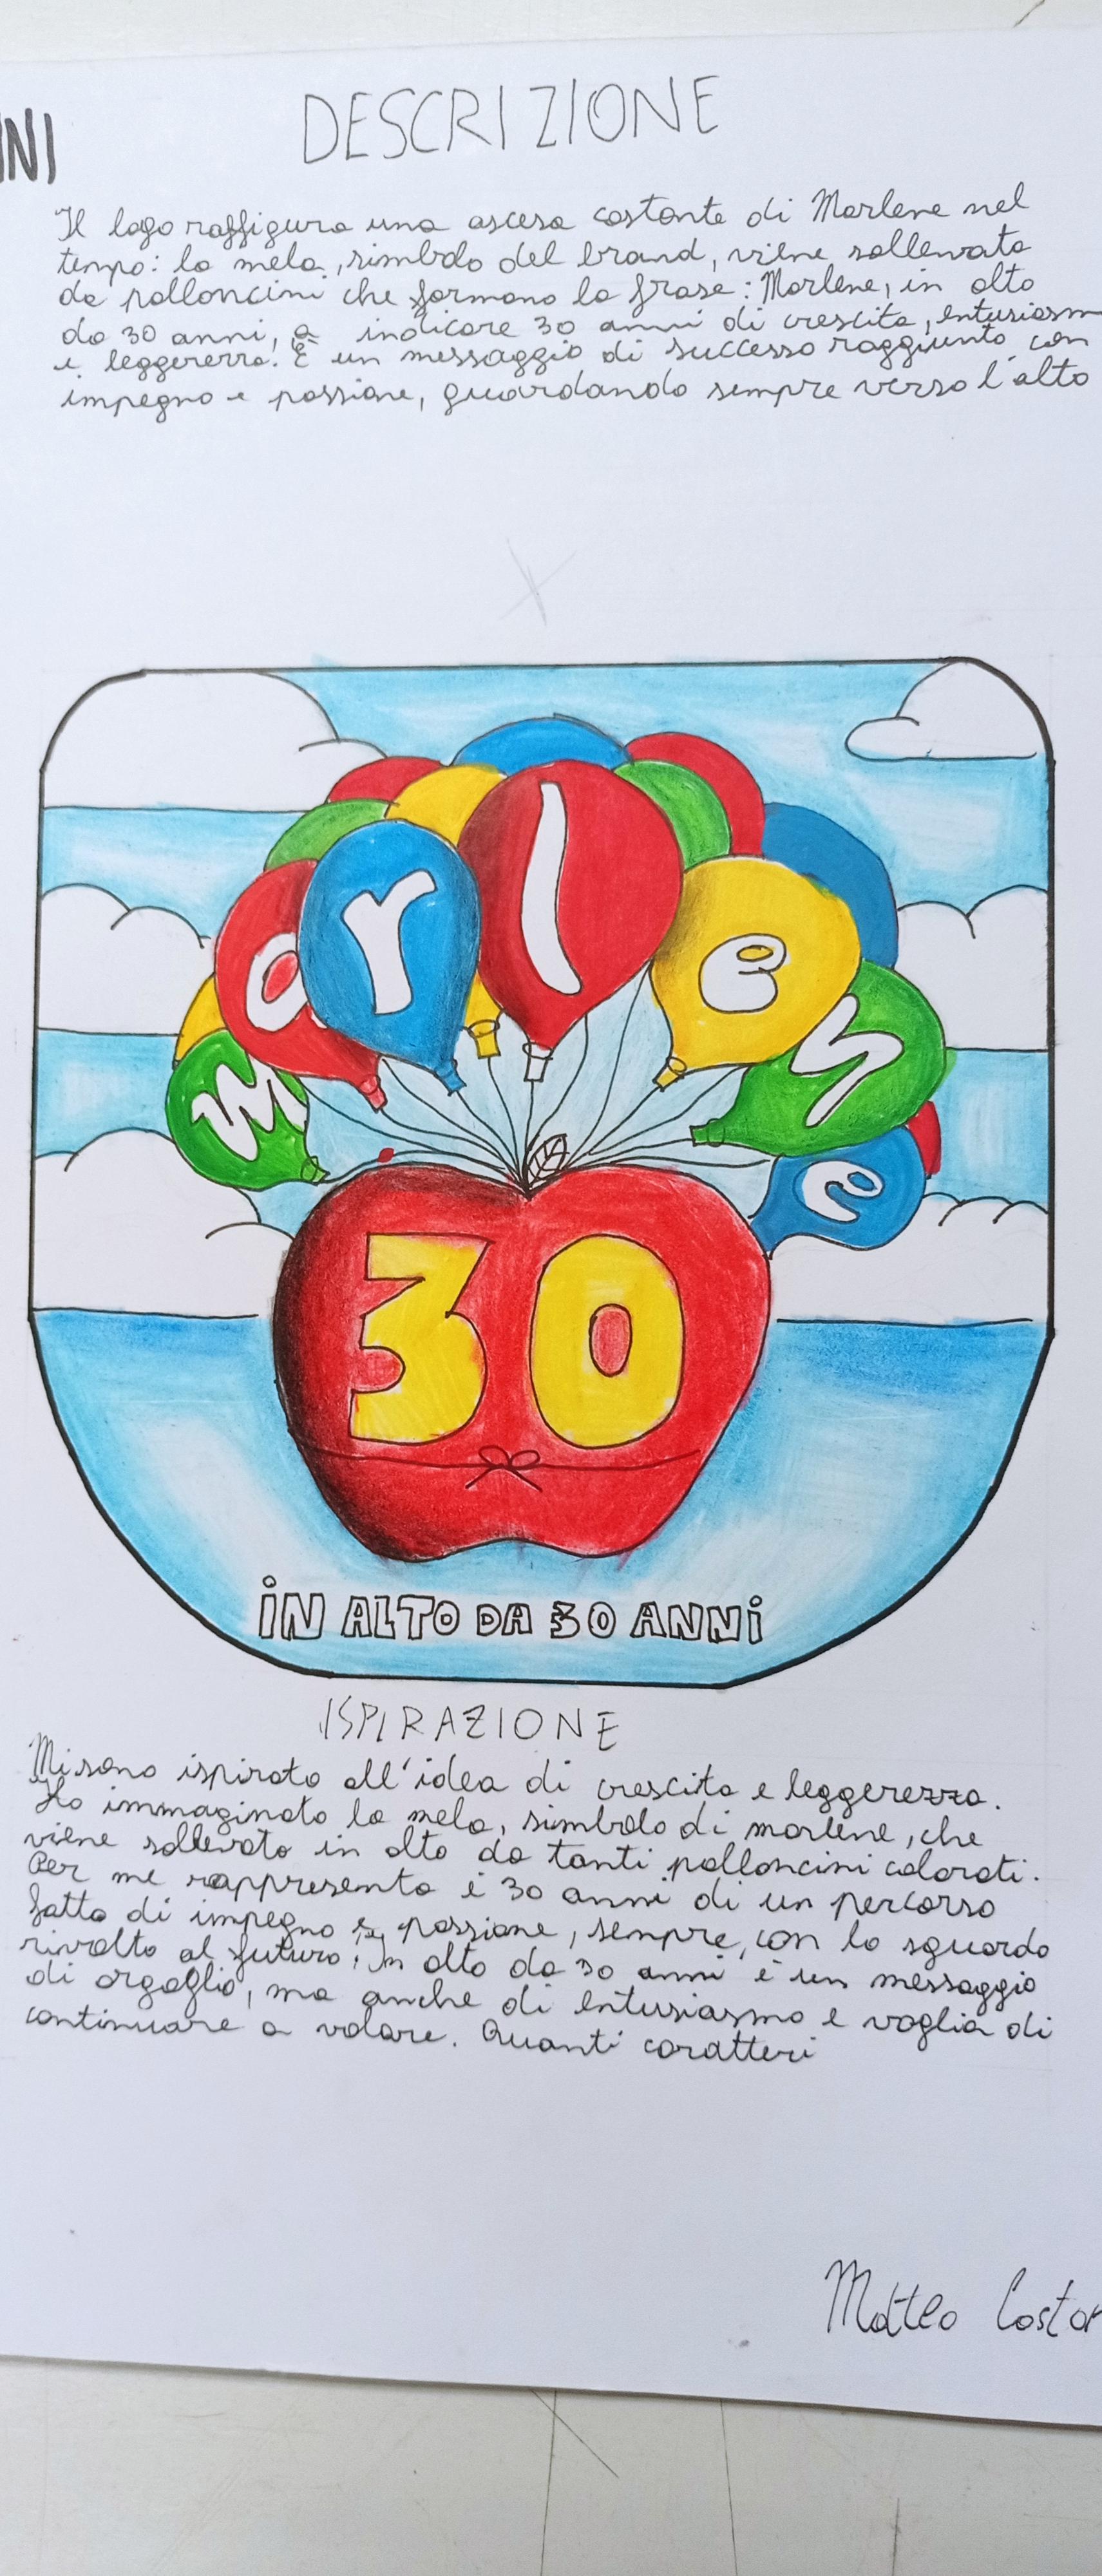 NI
DESCRIZIONE
Il logo raffigura una ascesa costante di Marlene nel
tempo: la mela, simbolo del brand, viene sollevata
da palloncini che formano la frase: Marlene, in alto
da 30 anni, a indicare 30 anni di crescita, entusiasm
e leggerezza. È un messaggio di successo raggiunto con
impegno e passione, guardando sempre verso l'alto
marlene
30
iN ALTO DA 30 ANNi
ISPIRAZIONE
Mi sono ispirato all'idea di crescita e leggerezza.
Ho immaginato la mela, simbolo di marlene, che
viene sollevata in alto da tanti palloncini colorati.
Per me rappresenta i 30 anni di un percorso
fatto di impegno e passione, sempre, con lo sguardo
rivolto al futuro. In alto da 30 anni è un messaggio
di orgoglio, ma anche di entusiasmo e voglia di
continuare a volare. Quanti caratteri
Matteo Costa